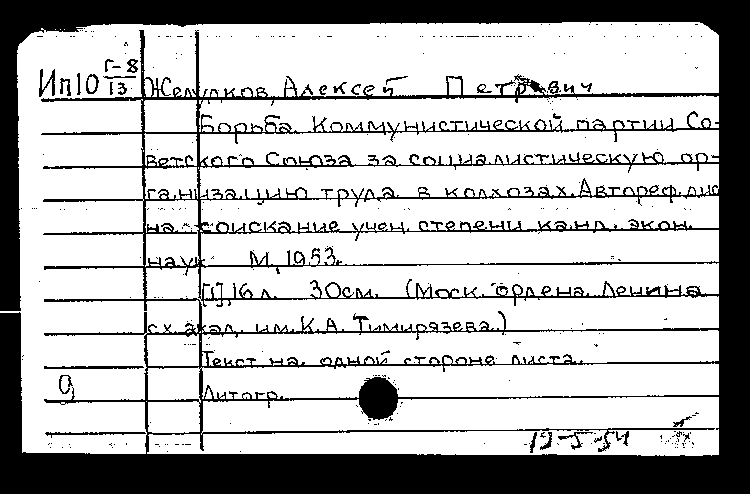 Ип10 Г-8/13 Желудков, Алексей Петрович
Борьба Коммунистической партии Со-
ветского Союза за социалистическую ор-
ганизацию труда в колхозах. Автореф. дис
на соискание учен. степени канд. экон.
наук М, 1953.
[1], 16 л. 30см. (Моск. ордена Ленина
с.х. акад. им. К.А. Тимирязева.)
Текст на одной стороне листа.
9 Литогр.
19-5-54